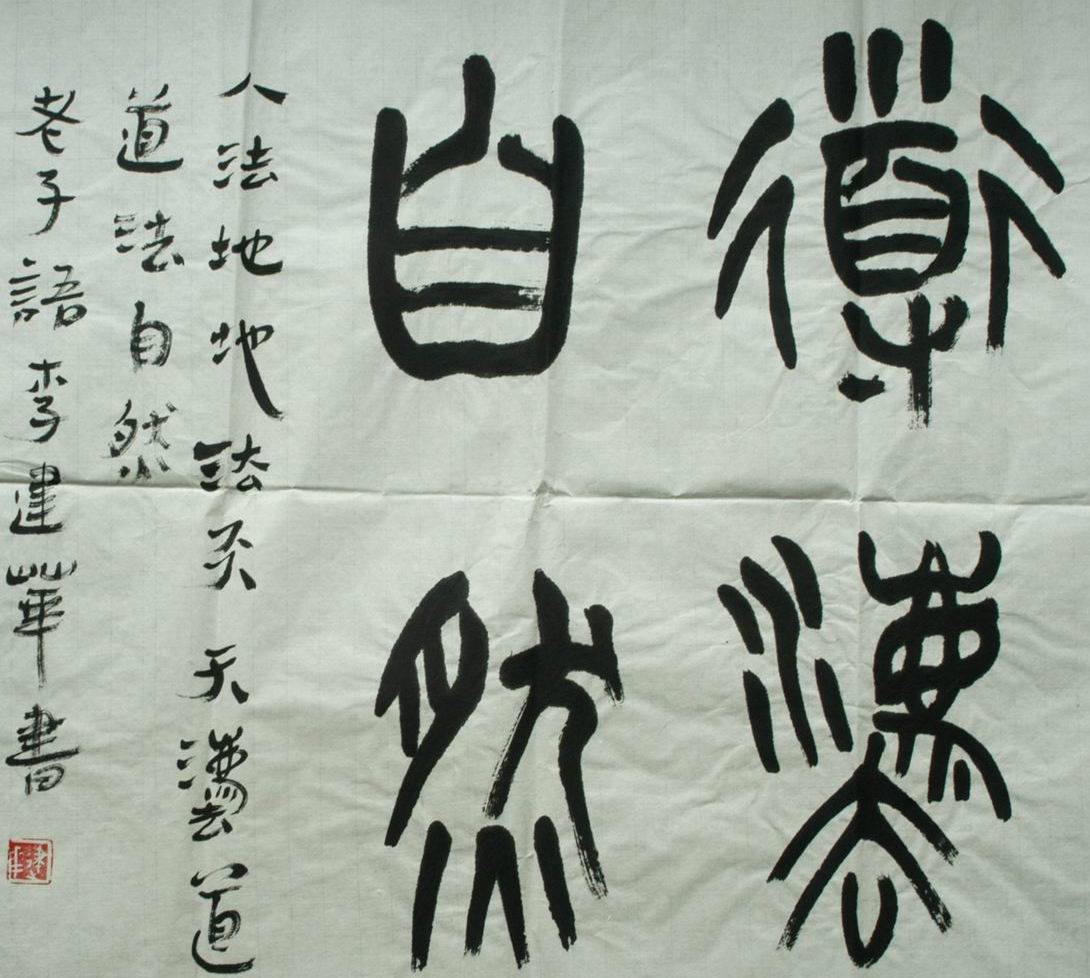 道灋
自然
人法地地法天天灋道
道法自然
老子語李建華書